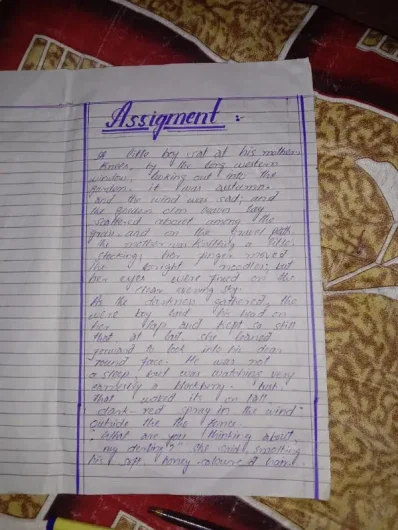 Assigment :-
A little boy sat at his mother
knees, by the long western
window, looking out into the
garden. it was autumn,
and the wind was sad; and
the golden elm leaves lay
scattered about among the
grass, and on the gravel path.
The mother was knitting a little
stocking; her finger moved
the bright needles; but
her eyes were fixed on the
clear evening sky.
As the darkness gathered, the
wee boy laid his head on
her lap and kept so still
that, at last, she leaned
forward to look into his dear
round face. He was not
a sleep, but was watching very
earnestly a blackberry-bush,
that waved its on tall,
dark-red spray in the wind
outside the the fence.
"What are you thinking about,
my darling?" she said, smoothing
his soft, honey-coloured hair.